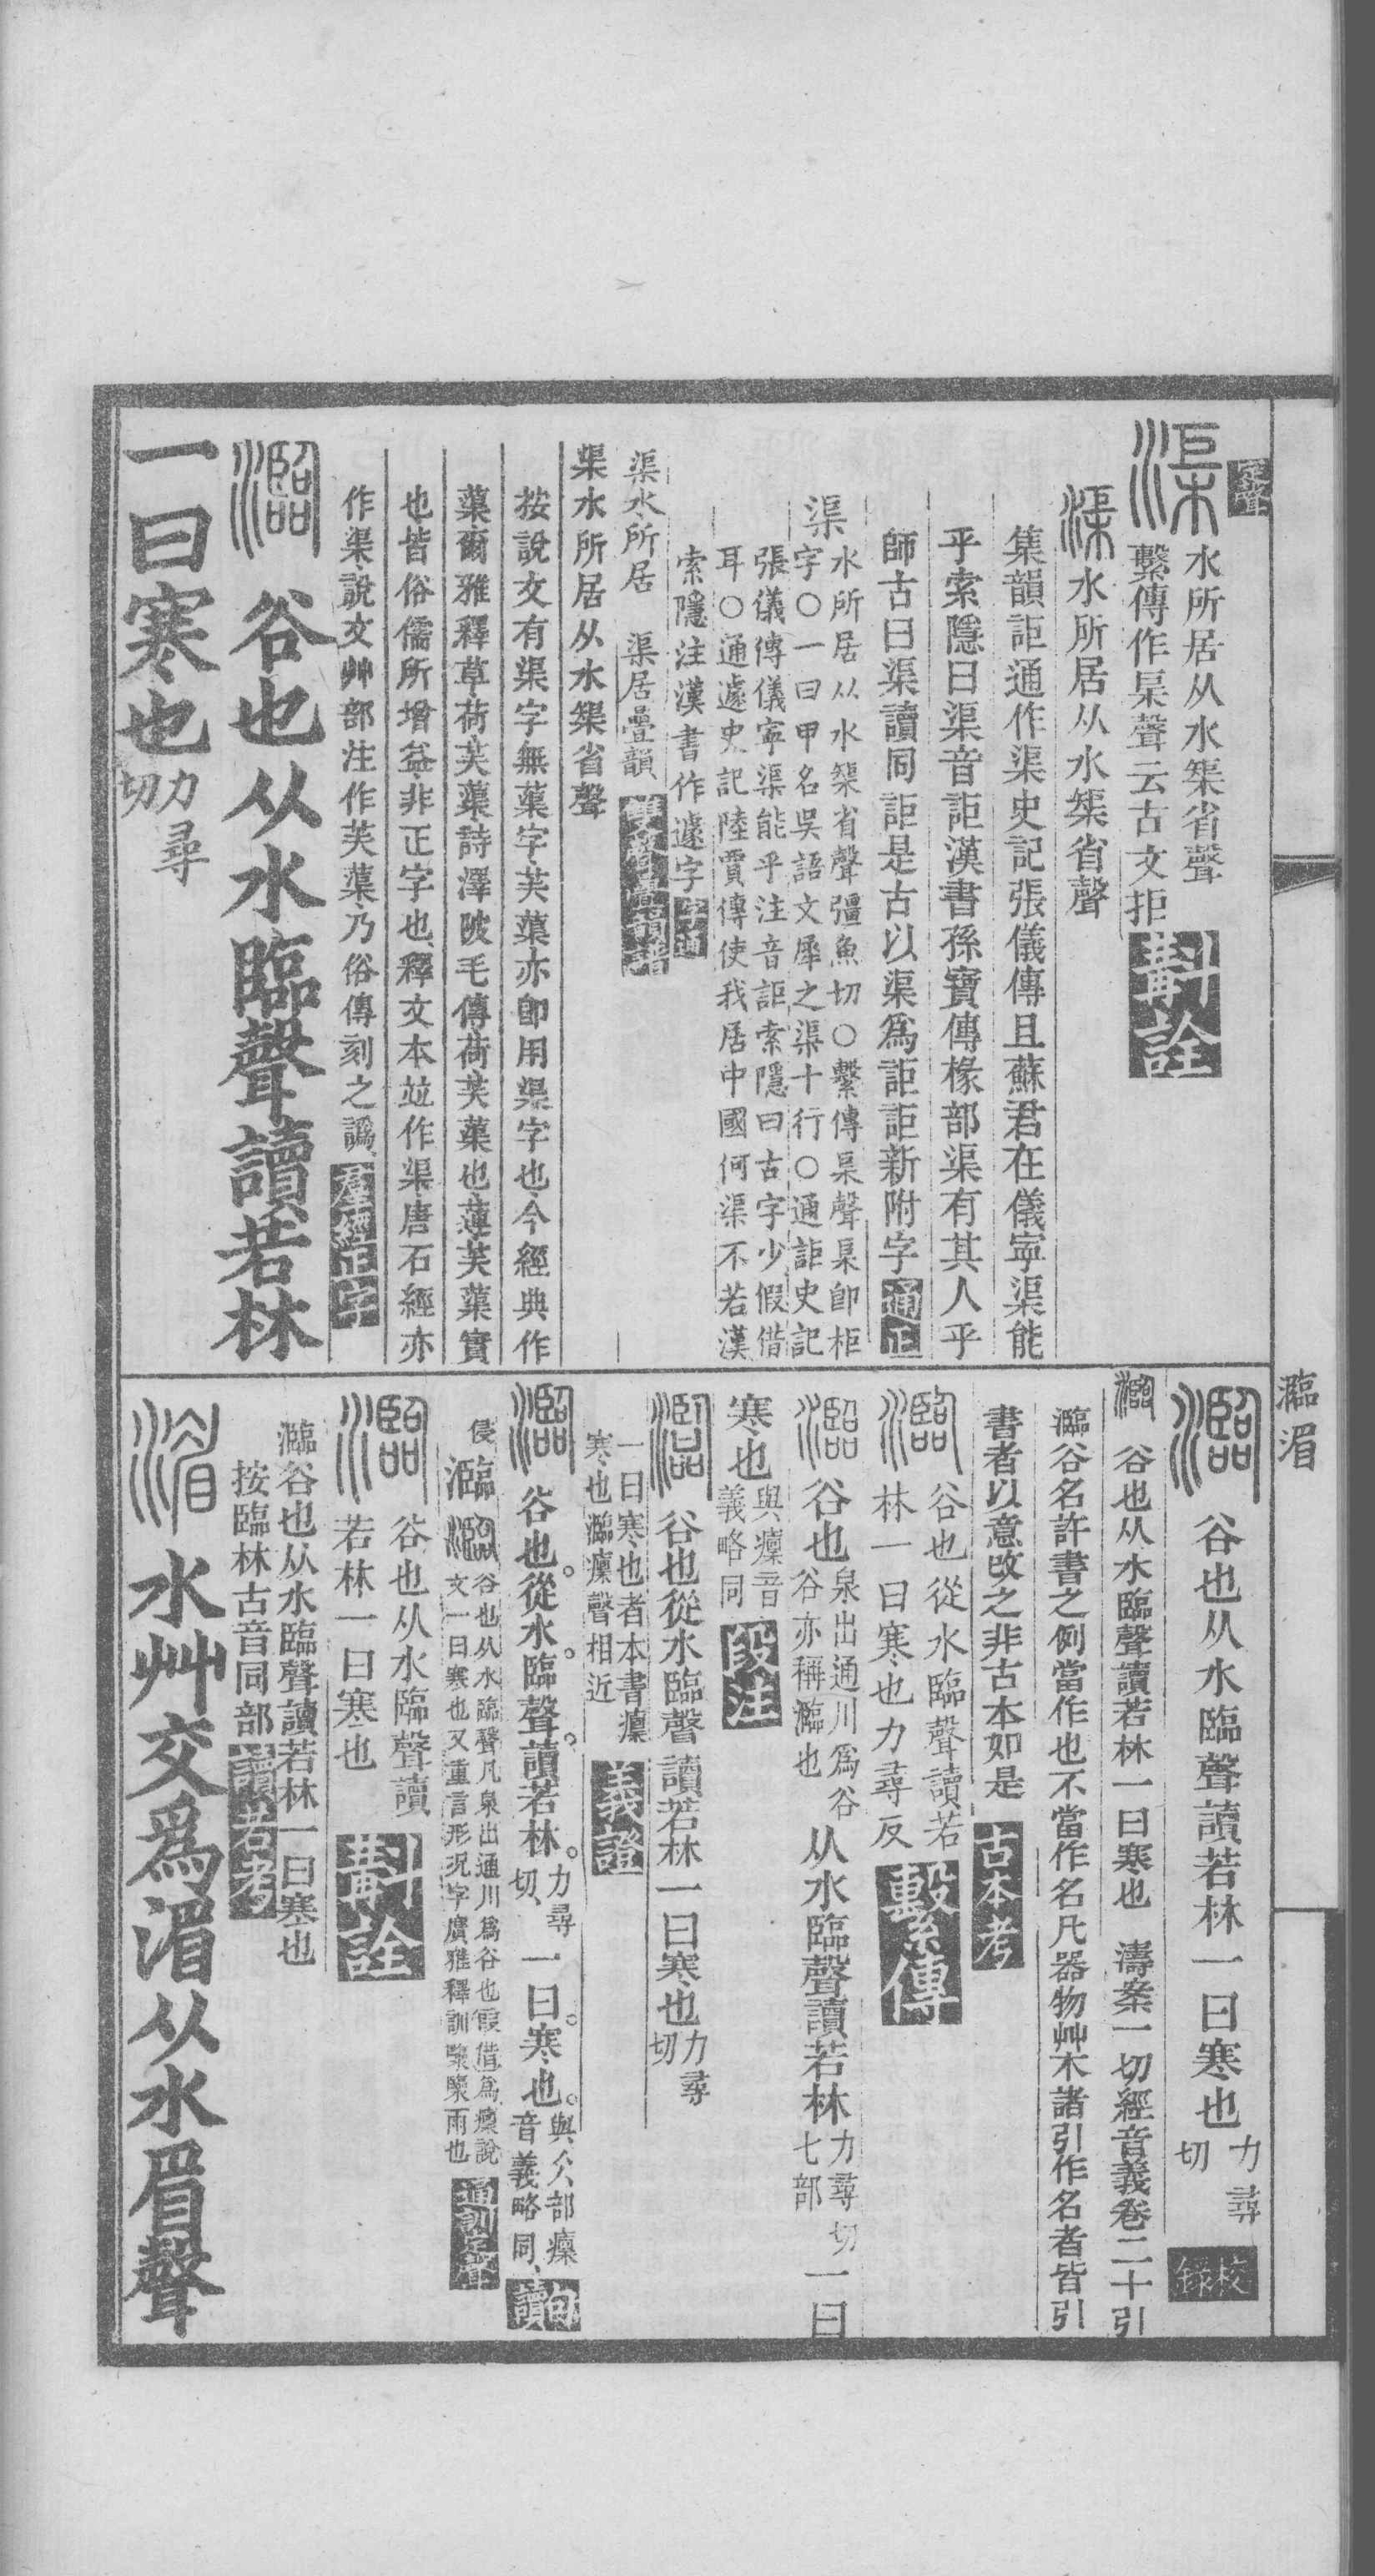 定聲
渠
水所居从水榘省聲
繫傳作杲聲云古文拒
斠詮
渠水所居从水榘省聲
集韻詎通作渠史記張儀傳且蘇君在儀寧渠能
乎索隱曰渠音詎漢書孫寶傳掾部渠有其人乎
師古曰渠讀同詎是古以渠爲詎詎新附字
通正
渠
水所居从水榘省聲彊魚切○繫傳杲聲杲卽柜
字○一曰甲名吳語文犀之渠十行○通詎史記
張儀傳儀寧渠能乎注音詎索隱曰古字少假借
耳○通遽史記陸賈傳使我居中國何渠不若漢
索隱注漢書作遽字
字通
渠水所居 渠居疊韻
渠水所居从水榘省聲
按說文有渠字無蕖字芙蕖亦卽用渠字也今經典作
蕖爾雅釋草荷芙蕖詩澤陂毛傳荷芙蕖也蓮芙蕖實
也皆俗儒所增益非正字也釋文本竝作渠唐石經亦
作渠說文艸部注作芙蕖乃俗傳刻之譌
羣經正字
瀶 谷也从水臨聲讀若林
一曰寒也
力尋
切
瀶湄
瀶谷也从水臨聲讀若林一曰寒也
力尋
切
校錄
瀶 谷也从水臨聲讀若林一曰寒也 濤案一切經音義卷二十引
瀶谷名許書之例當作也不當作名凡器物艸木諸引作名者皆引
書者以意改之非古本如是
古本考
瀶
谷也從水臨聲讀若
林一曰寒也力尋反
繫傳
瀶谷也
泉出通川爲谷
谷亦稱瀶也
从水臨聲讀若林
力尋切
七部
一曰
寒也
與癛音
義略同
段注
瀶谷也從水臨聲讀若林一曰寒也
力尋
切
一曰寒也者本書癛
寒也瀶癛聲相近
義證
瀶谷也。從水。臨聲。讀若林。
力尋
切、
一曰。寒也。
與仌部癛
音義略同、
句讀
侵
瀶瀶
谷也从水臨聲凡泉出通川爲谷也叚借爲癛說
文一曰寒也又重言形況字廣雅釋訓瀶瀶雨也
通訓定聲
瀶
谷也从水臨聲讀
若林一曰寒也
斠詮
瀶谷也从水臨聲讀若林一曰寒也
按臨林古音同部
讀若考
湄水艸交爲湄从水眉聲